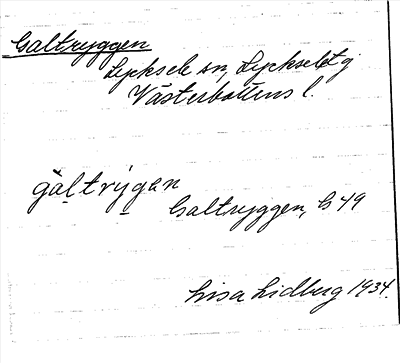 Galtryggen
Lycksele sn, Lycksele tg
Västerbottens l.
gàl̲trỳg̲ən
Galtryggen, G 49
Lisa Lidberg 1934.